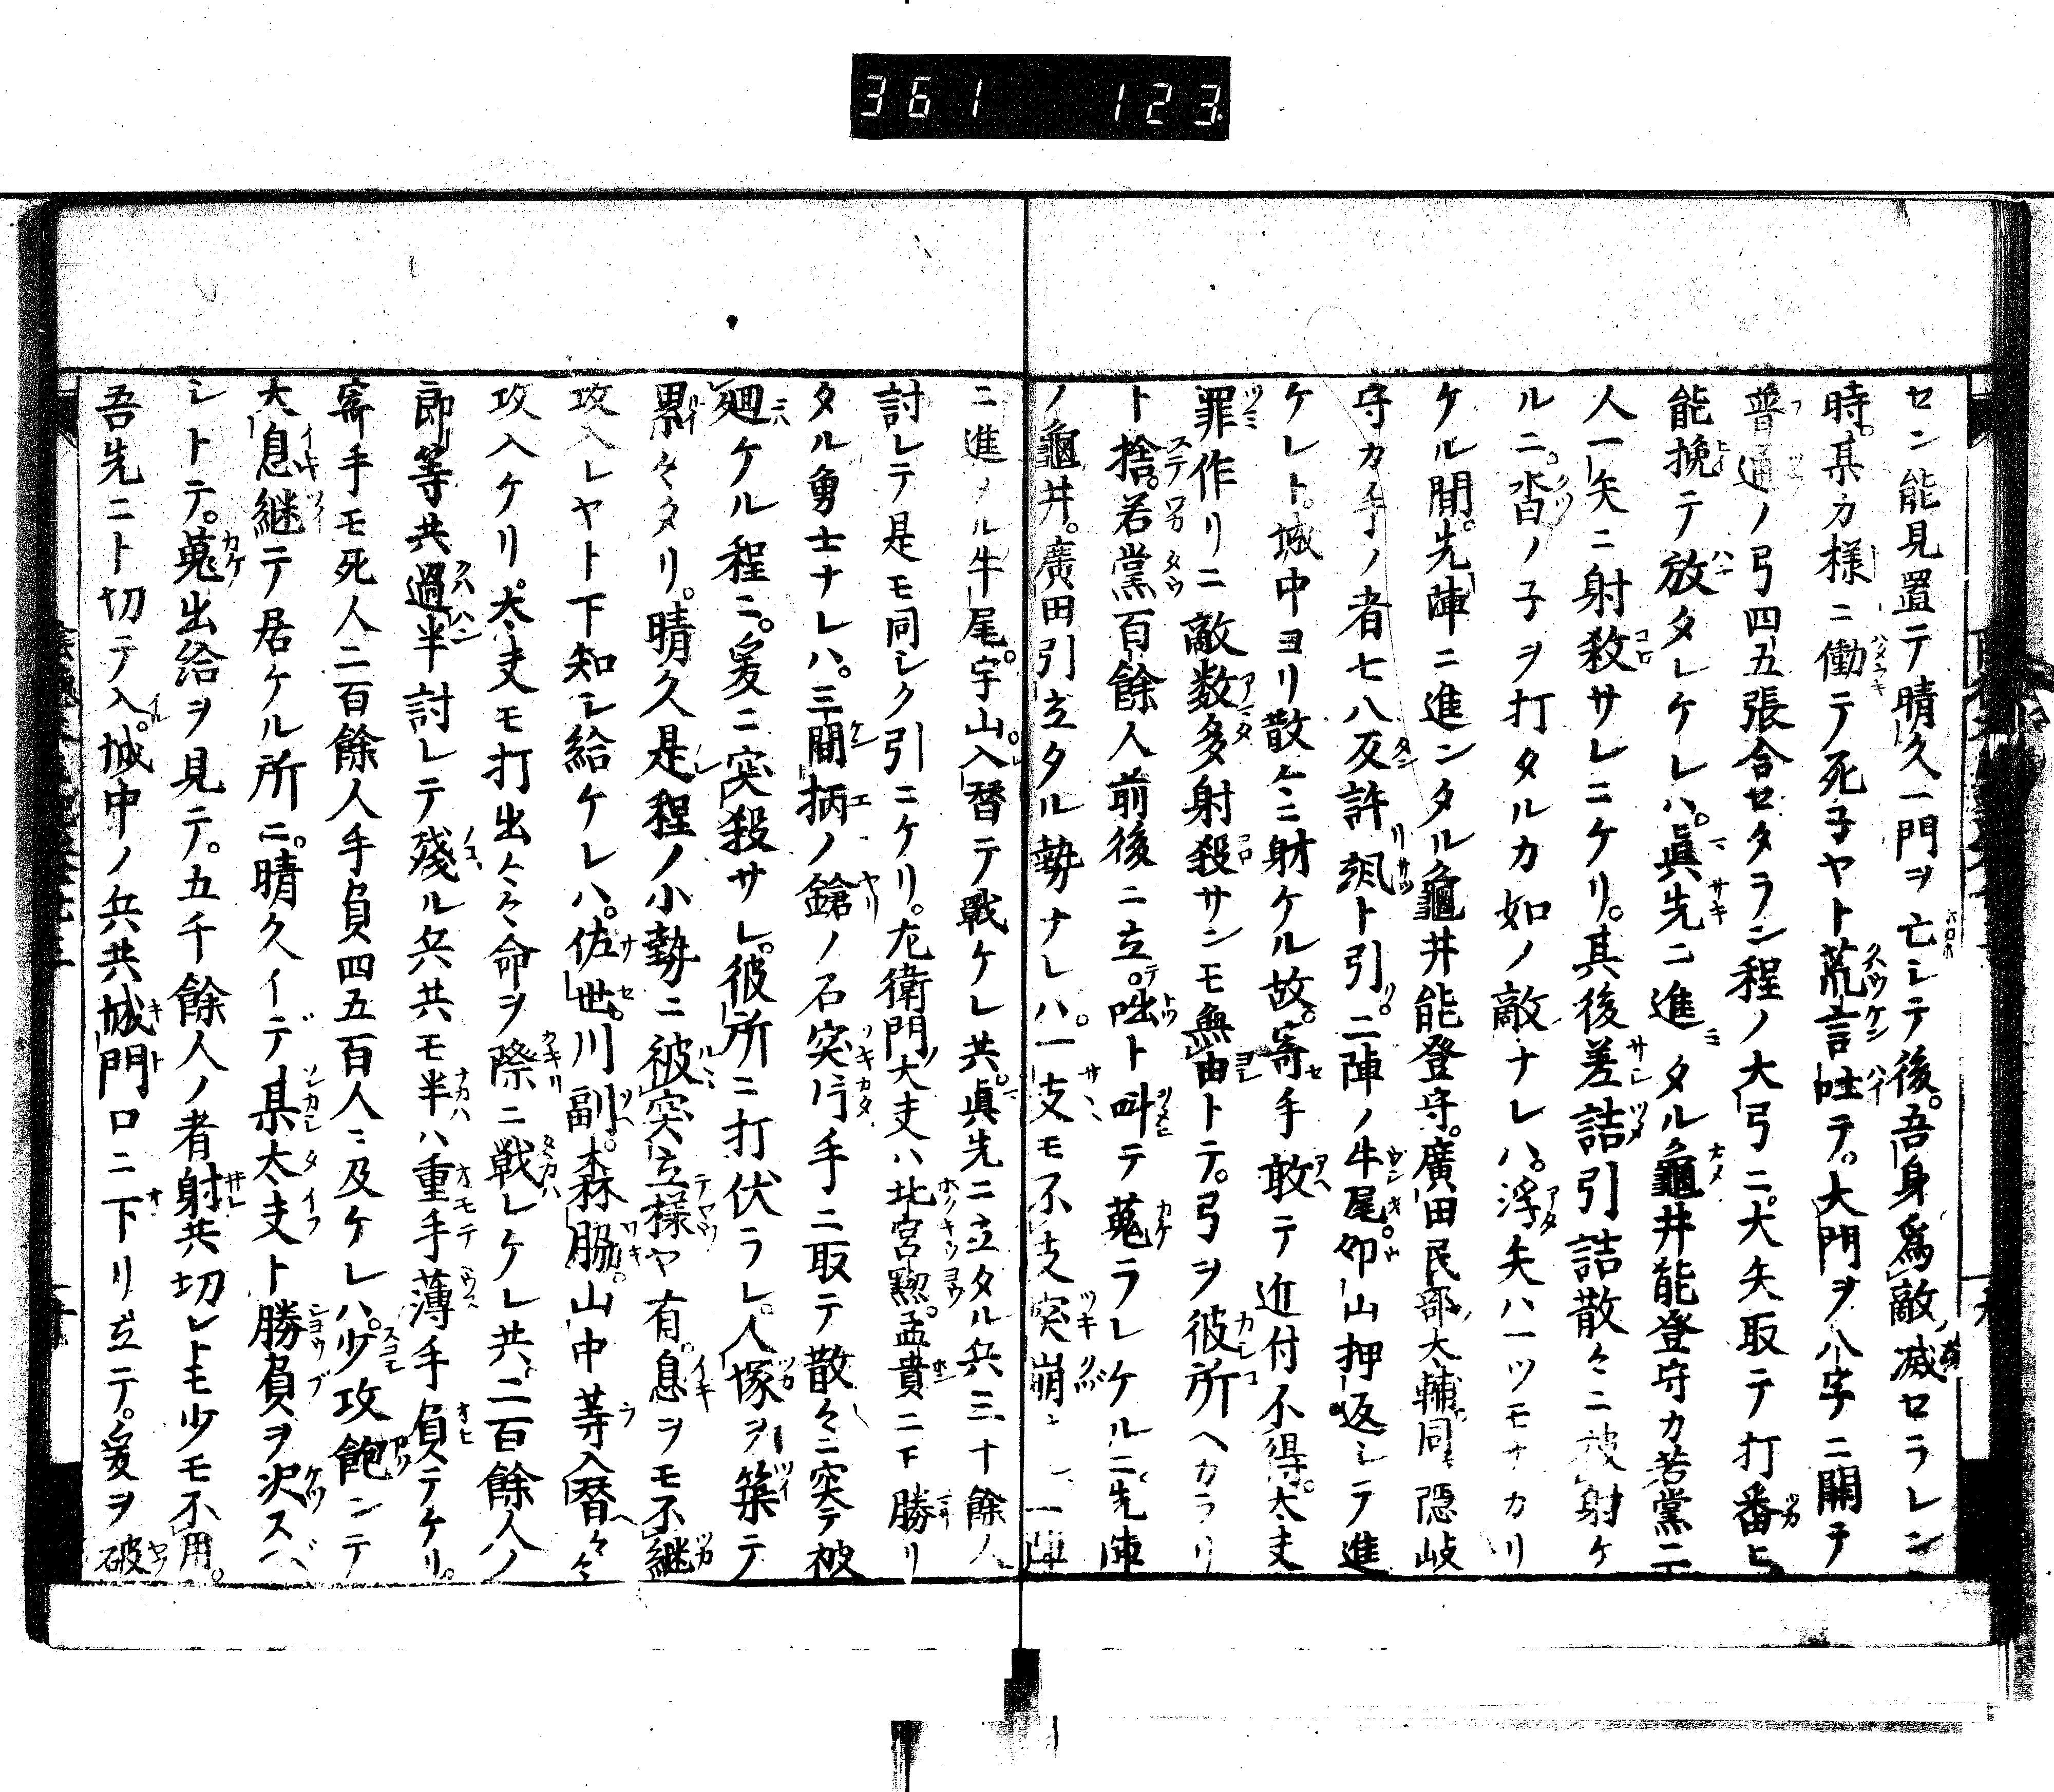 361 123
セン能見置テ晴久一門ヲ亡シテ後。吾身為敵滅セラレン
時。某カ様ニ働テ死子ヤト荒言吐テ。大門ヲ八字ニ開テ
普通ノ弓四五張合セタラン程ノ大弓ニ。大矢取テ打番ヒ
能挽テ放タレケレハ。眞先ニ進タル龜井能登守カ若黨二
人一矢ニ射殺サレニケリ。其後差詰引詰散々ニ被射ケ
ルニ。沓ノ子ヲ打タルカ如ノ敵ナレハ。浮矢ハ一ツモナカリ
ケル間。先陣ニ進ンタル龜井能登守。廣田民部大輔同隠岐
守カ手ノ者七八反許颯ト引。二陣ノ牛尾卯山押返シテ進
ケレト。城中ヨリ散々ニ射ケル故。寄手敢テ近付不得。太夫
罪作リニ敵数多射殺サンモ無由トテ。弓ヲ彼所ヘカラリ
ト捨。若黨百餘人前後ニ立。咄ト叫テ蒐ラレケルニ。先陣
ノ龜井。廣田引立タル勢ナレハ。一支モ不支突崩シ一陣
ニ進ノル牛尾。宇山。入替テ戰ケレ共。眞先ニ立タル兵三十餘人
討レテ是モ同シク引ニケリ。左衛門大夫ハ北宮黝。孟賁ニ下勝リ
タル勇士ナレハ。三間柄ノ鎗ノ石突片手ニ取テ散々ニ突テ被
廻ケル程ニ。爰ニ突殺サレ。彼所ニ打伏ラレ。人塚ヲ築テ
累々タリ。晴久是程ノ小勢ニ被突立様ヤ有。息ヲモ不継
攻入レヤト下知シ給ケレハ。佐世。川副。森脇。山中等入替々々
攻入ケリ。太夫モ打出々々命ヲ際ニ戦レケレ共。二百餘人ノ
郎等共過半討レテ殘ル兵共モ半ハ重手薄手負テケリ。
寄手モ死人二百餘人手負四五百人ニ及ケレハ。少攻飽ンテ
大息継テ居ケル所ニ。晴久イデ某太夫ト勝負ヲ決スヘ
シトテ。蒐出給ヲ見テ。五千餘人ノ者射共切レトモ少モ不用。
吾先ニト切テ入。城中ノ兵共城門口ニ下リ立テ。爰ヲ破